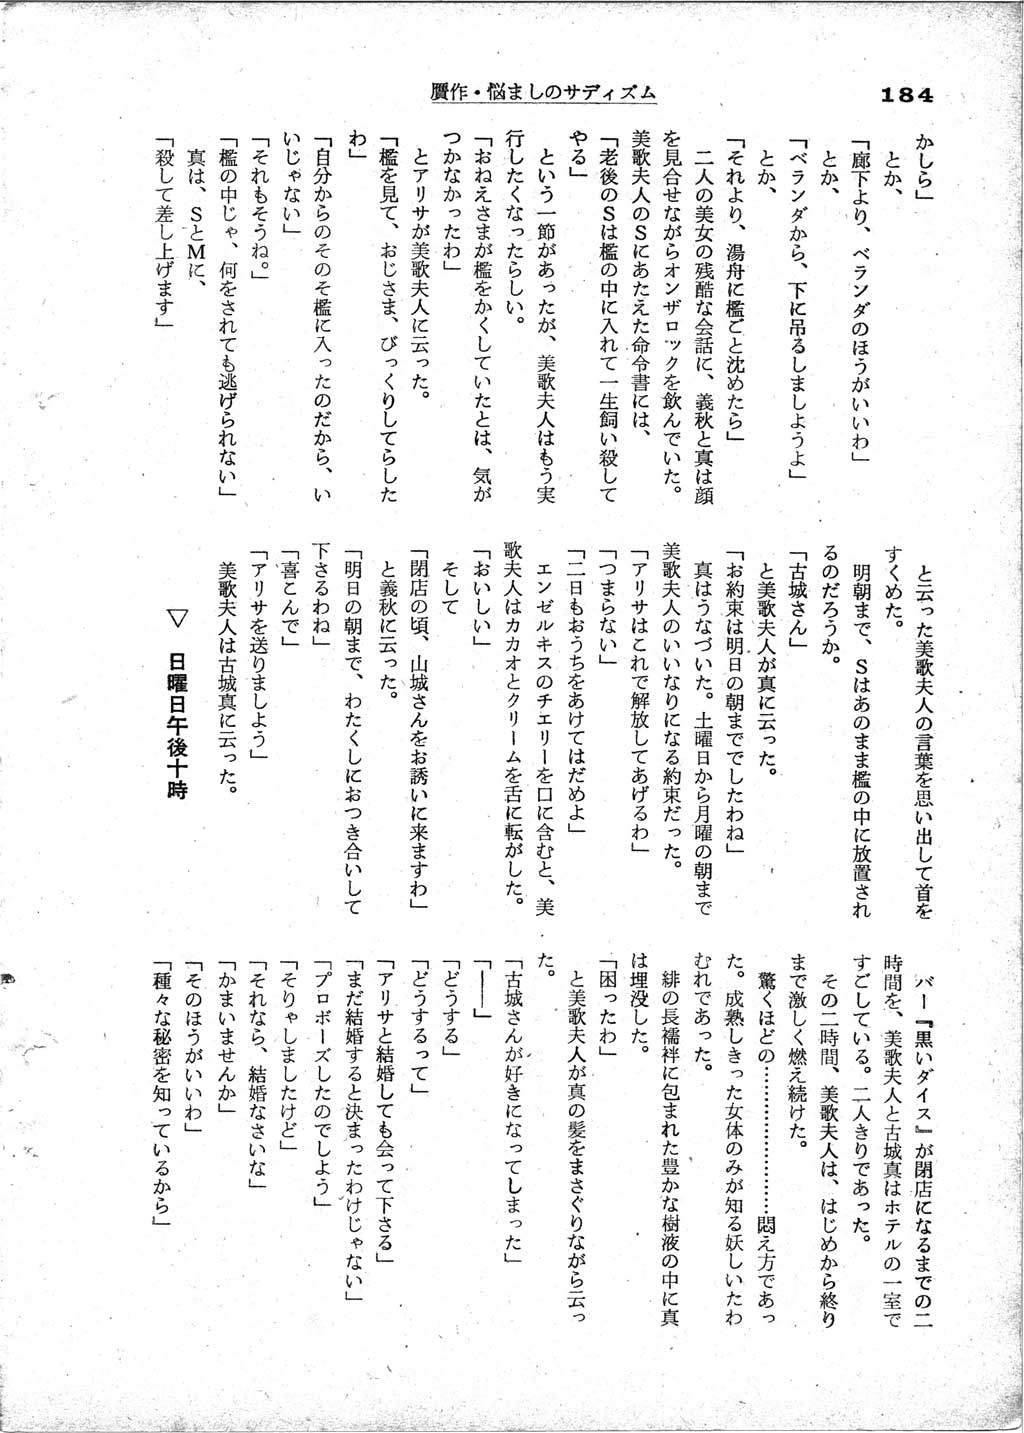 贋作・悩ましのサディズム
184
かしら」
とか、
「廊下より、ベランダのほうがいいわ」
とか、
「ベランダから、下に吊るしましようよ」
とか、
「それより、湯舟に檻ごと沈めたら」
二人の美女の残酷な会話に、義秋と真は顔
を見合せながらオンザロックを飲んでいた。
美歌夫人のSにあたえた命令書には、
「老後のSは檻の中に入れて一生飼い殺して
やる」
という一節があったが、美歌夫人はもう実
行したくなったらしい。
「おねえさまが檻をかくしていたとは、気が
つかなかったわ」
とアリサが美歌夫人に云った。
「檻を見て、おじさま、びっくりしてらした
わ」
「自分からのそのそ檻に入ったのだから、い
いじゃない」
「それもそうね。」
「檻の中じゃ、何をされても逃げられない」
真は、SとMに、
「殺して差し上げます」
と云った美歌夫人の言葉を思い出して首を
すくめた。
明朝まで、Sはあのまま檻の中に放置され
るのだろうか。
「古城さん」
と美歌夫人が真に云った。
「お約束は明日の朝まででしたわね」
真はうなづいた。土曜日から月曜の朝まで
美歌夫人のいいなりになる約束だった。
「アリサはこれで解放してあげるわ」
「つまらない」
「二日もおうちをあけてはだめよ」
エンゼルキスのチエリーを口に含むと、美
歌夫人はカカオとクリームを舌に転がした。
「おいしい」
そして
「閉店の頃、山城さんをお誘いに来ますわ」
と義秋に云った。
「明日の朝まで、わたくしにおつき合いして
下さるわね」
「喜こんで」
「アリサを送りましよう」
美歌夫人は古城真に云った。
▽ 日曜日午後十時
バー『黒いダイス』が閉店になるまでの二
時間を、美歌夫人と古城真はホテルの一室で
すごしている。二人きりであった。
その二時間、美歌夫人は、はじめから終り
まで激しく燃え続けた。
驚くほどの………………悶え方であっ
た。成熟しきった女体のみが知る妖しいたわ
むれであった。
緋の長襦袢に包まれた豊かな樹液の中に真
は埋没した。
「困ったわ」
と美歌夫人が真の髪をまさぐりながら云っ
た。
「古城さんが好きになってしまった」
「――」
「どうする」
「どうするって」
「アリサと結婚しても会って下さる」
「まだ結婚すると決まったわけじゃない」
「プロポーズしたのでしよう」
「そりゃしましたけど」
「それなら、結婚なさいな」
「かまいませんか」
「そのほうがいいわ」
「種々な秘密を知っているから」